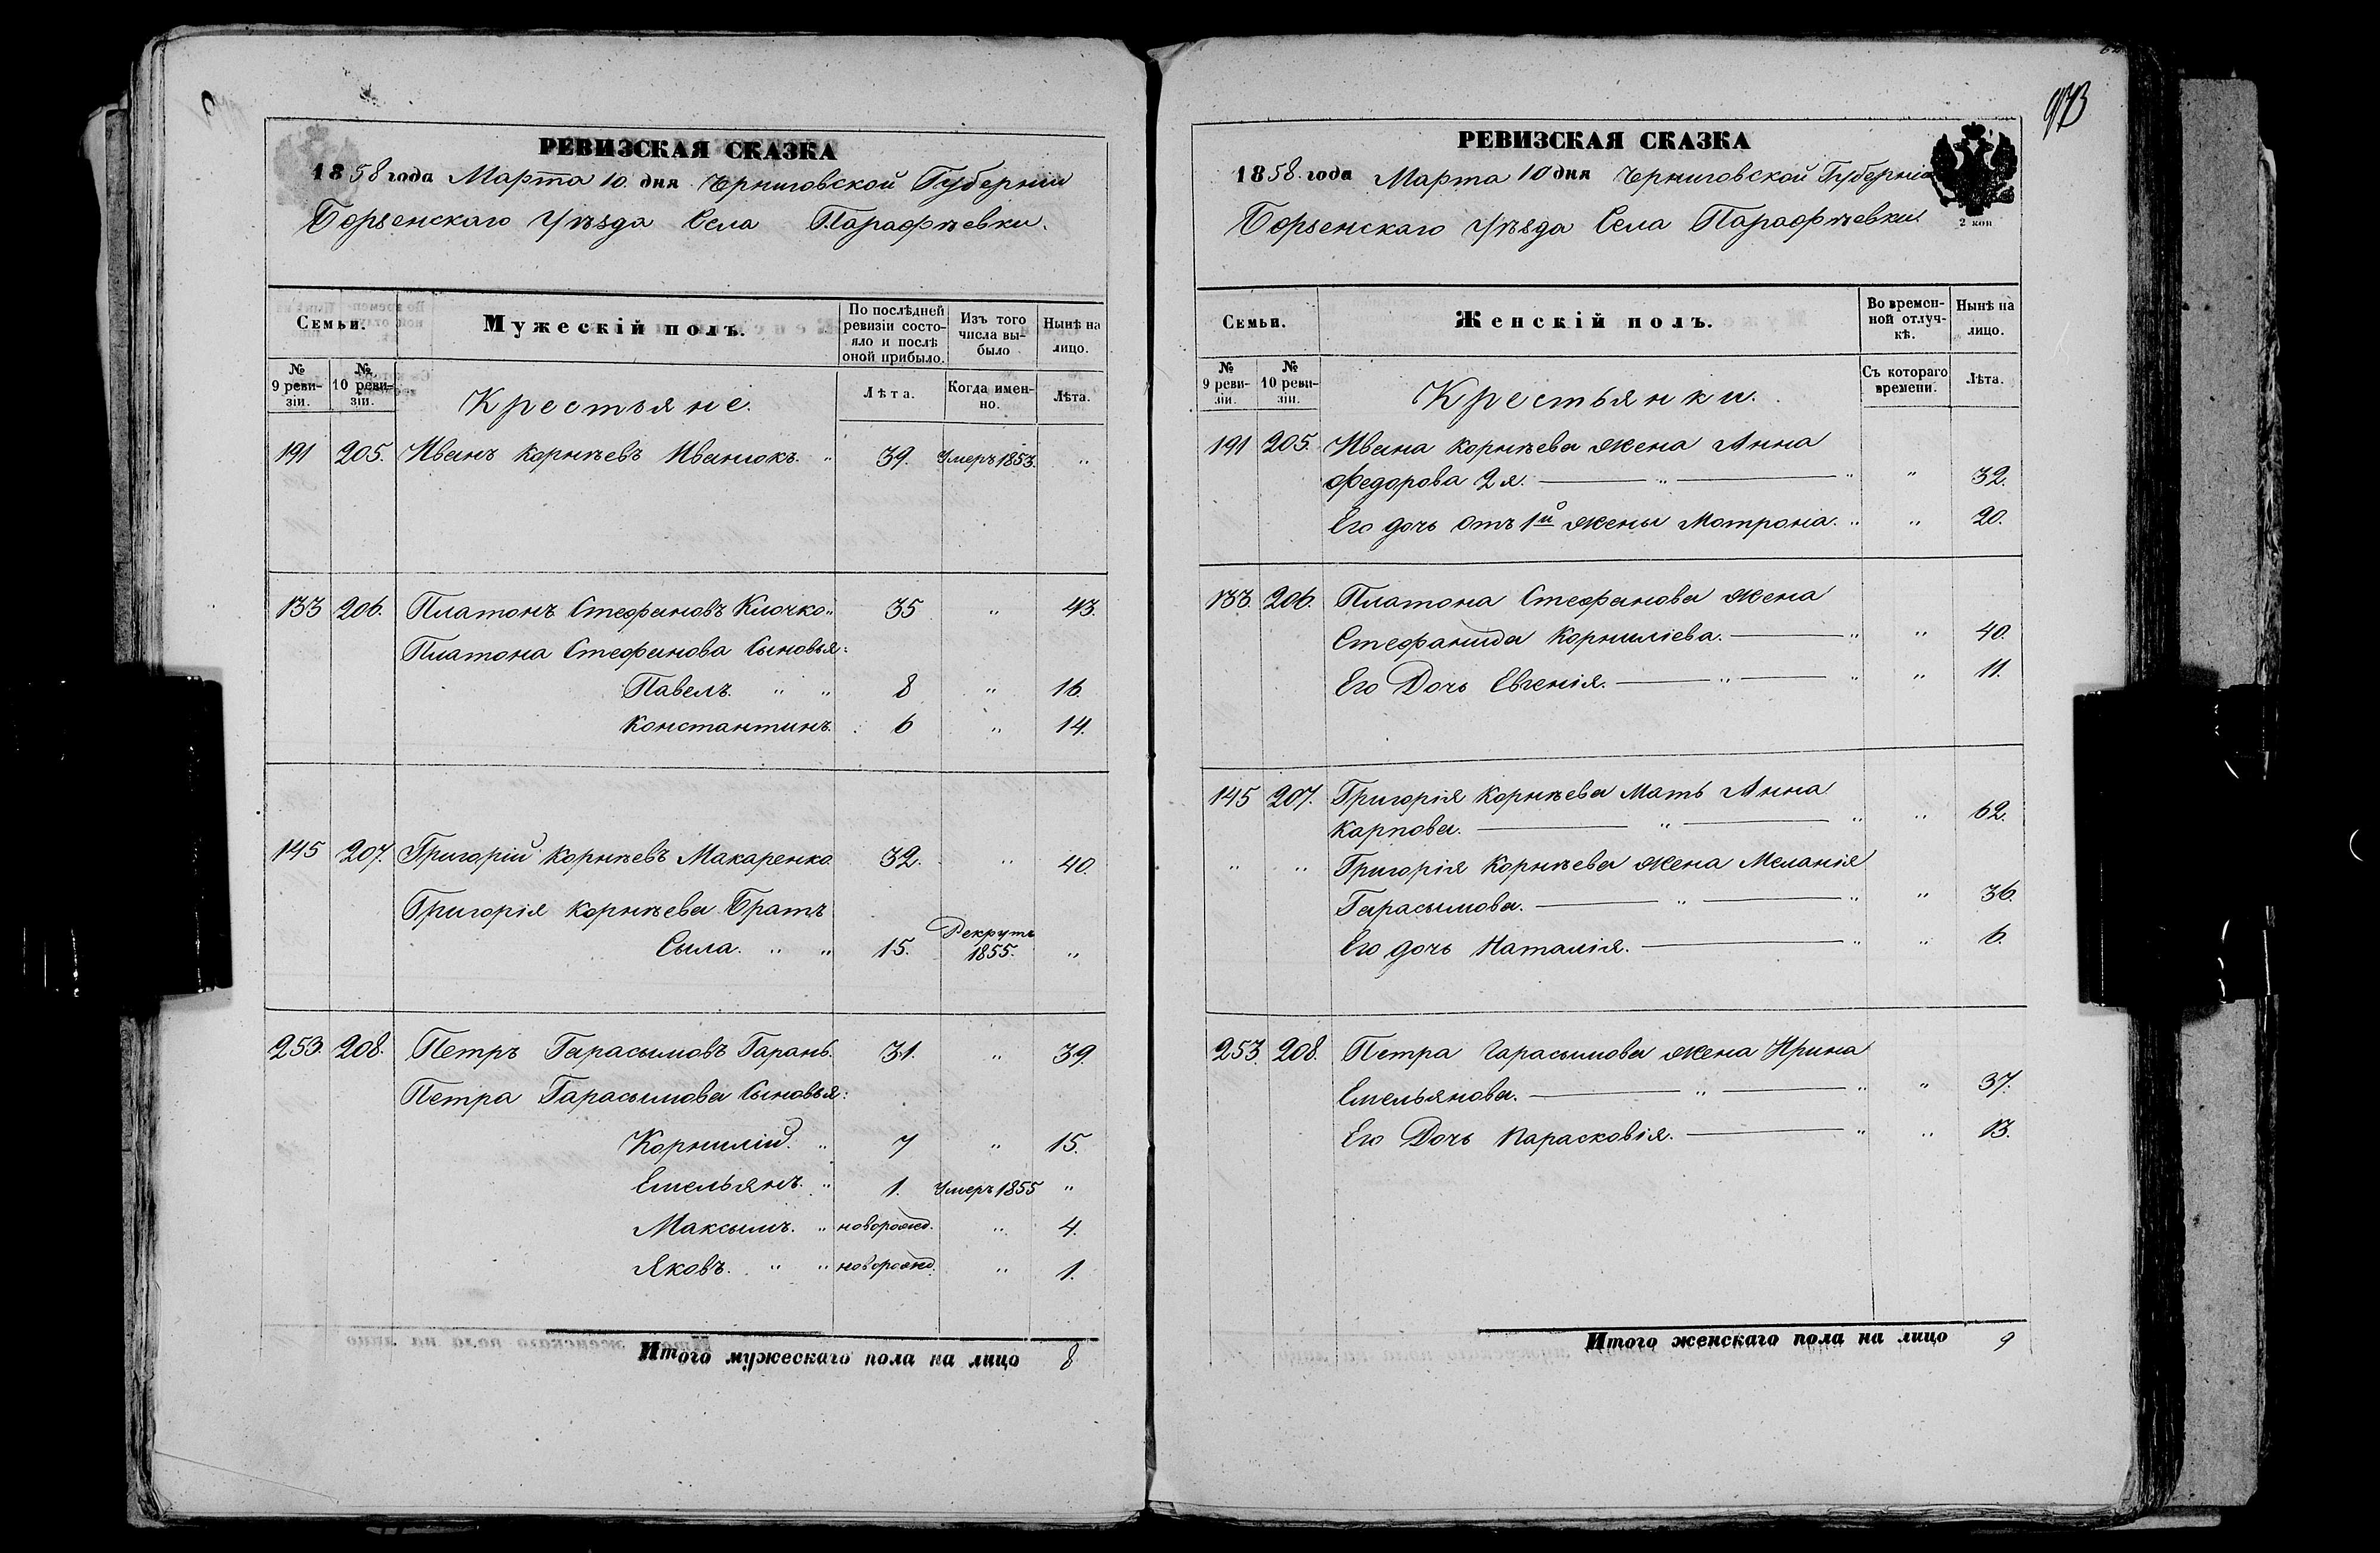 РЕВИЗСКАЯ СКАЗКА
1858 года Марта 10 дня Черниговской Губернии
Борзенскаго Уѣзда Села Парафѣевки.
Семьи.
Мужескій полъ.
По послѣдней ревизіи состояло и послѣ оной прибыло.
Изъ того числа выбыло
Нынѣ на лицо.
№ 9 ревизіи.
№ 10 ревизіи.
Крестьяне.
Лѣта.
Когда именно.
Лѣта.
191 205. Иванъ Корнѣевъ Иванюкъ. " 39. Умеръ 1853. "
133 206. Платонъ Стефановъ Клочко " 35 " 43.
Платона Стефанова Сыновья:
Павелъ. " " 8 " 16.
Константинъ. 6 " 14.
145 207. Григорій Корнѣевъ Макаренко 32. " 40.
Григорія Корнѣева Братъ
Сыла. " " 15. Рекрутъ 1855. "
253. 208. Петръ Гарасымовъ Гарань. 31. " 39.
Петра Гарасымова Сыновья:
Корнилій. " 7 " 15.
Емельянъ. " 1. Умеръ 1855 "
Максымъ. " новорожд. " 4.
Яковъ. " " новорожд. " 1.
Итого мужескаго пола на лицо 8
973
РЕВИЗСКАЯ СКАЗКА
1858 года Марта 10 дня Черниговской Губерніи
Борзенскаго Уѣзда Села Парафѣевки.
2 коп
Семьи.
Женскій полъ.
Во временной отлучкѣ.
Нынѣ на лицо.
№ 9 ревизіи.
№ 10 ревизіи.
Крестьянки.
Съ котораго времени.
Лѣта.
191 205. Ивана Корнѣева жена Анна
Федорова 2я. — " — " " 32.
Его дочь отъ 1й жены Мотрона. " " 20.
133. 206. Платона Стефанова жена
Стефанида Корниліева. — " " 40.
Его Дочь Евгенія. — " — " " 11.
145 207. Григорія Корнѣева Мать Анна
Карпова. — " — " " 62.
" " Григорія Корнѣева жена Меланія
Гарасымова. — " — " " 36.
Его дочь Наталія. — " " 6.
253. 208. Петра Гарасымова жена Ирина
Емельянова. — " — " " 37.
Его Дочь Парасковія. — " " 13.
Итого женскаго пола на лицо 9